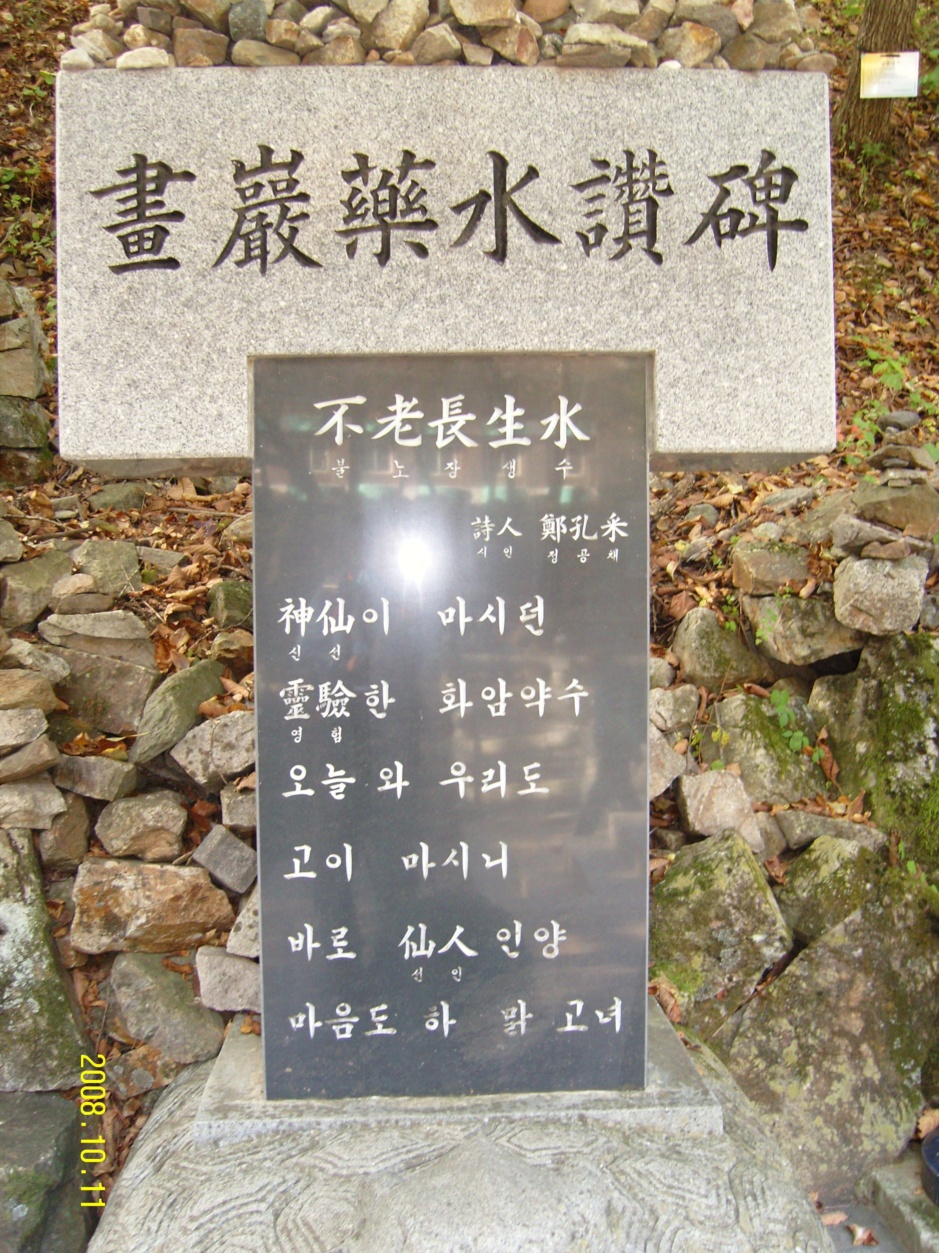 畫巖藥水讚碑
不老長生水
불 노 장 생 수
詩人 鄭孔采
시인 정공채
神仙이 마시던
신선
靈驗한 화암약수
영험
오늘 와 우리도
고이 마시니
바로 仙人인양
선인
마음도 하 맑 고녀
2008.10.11